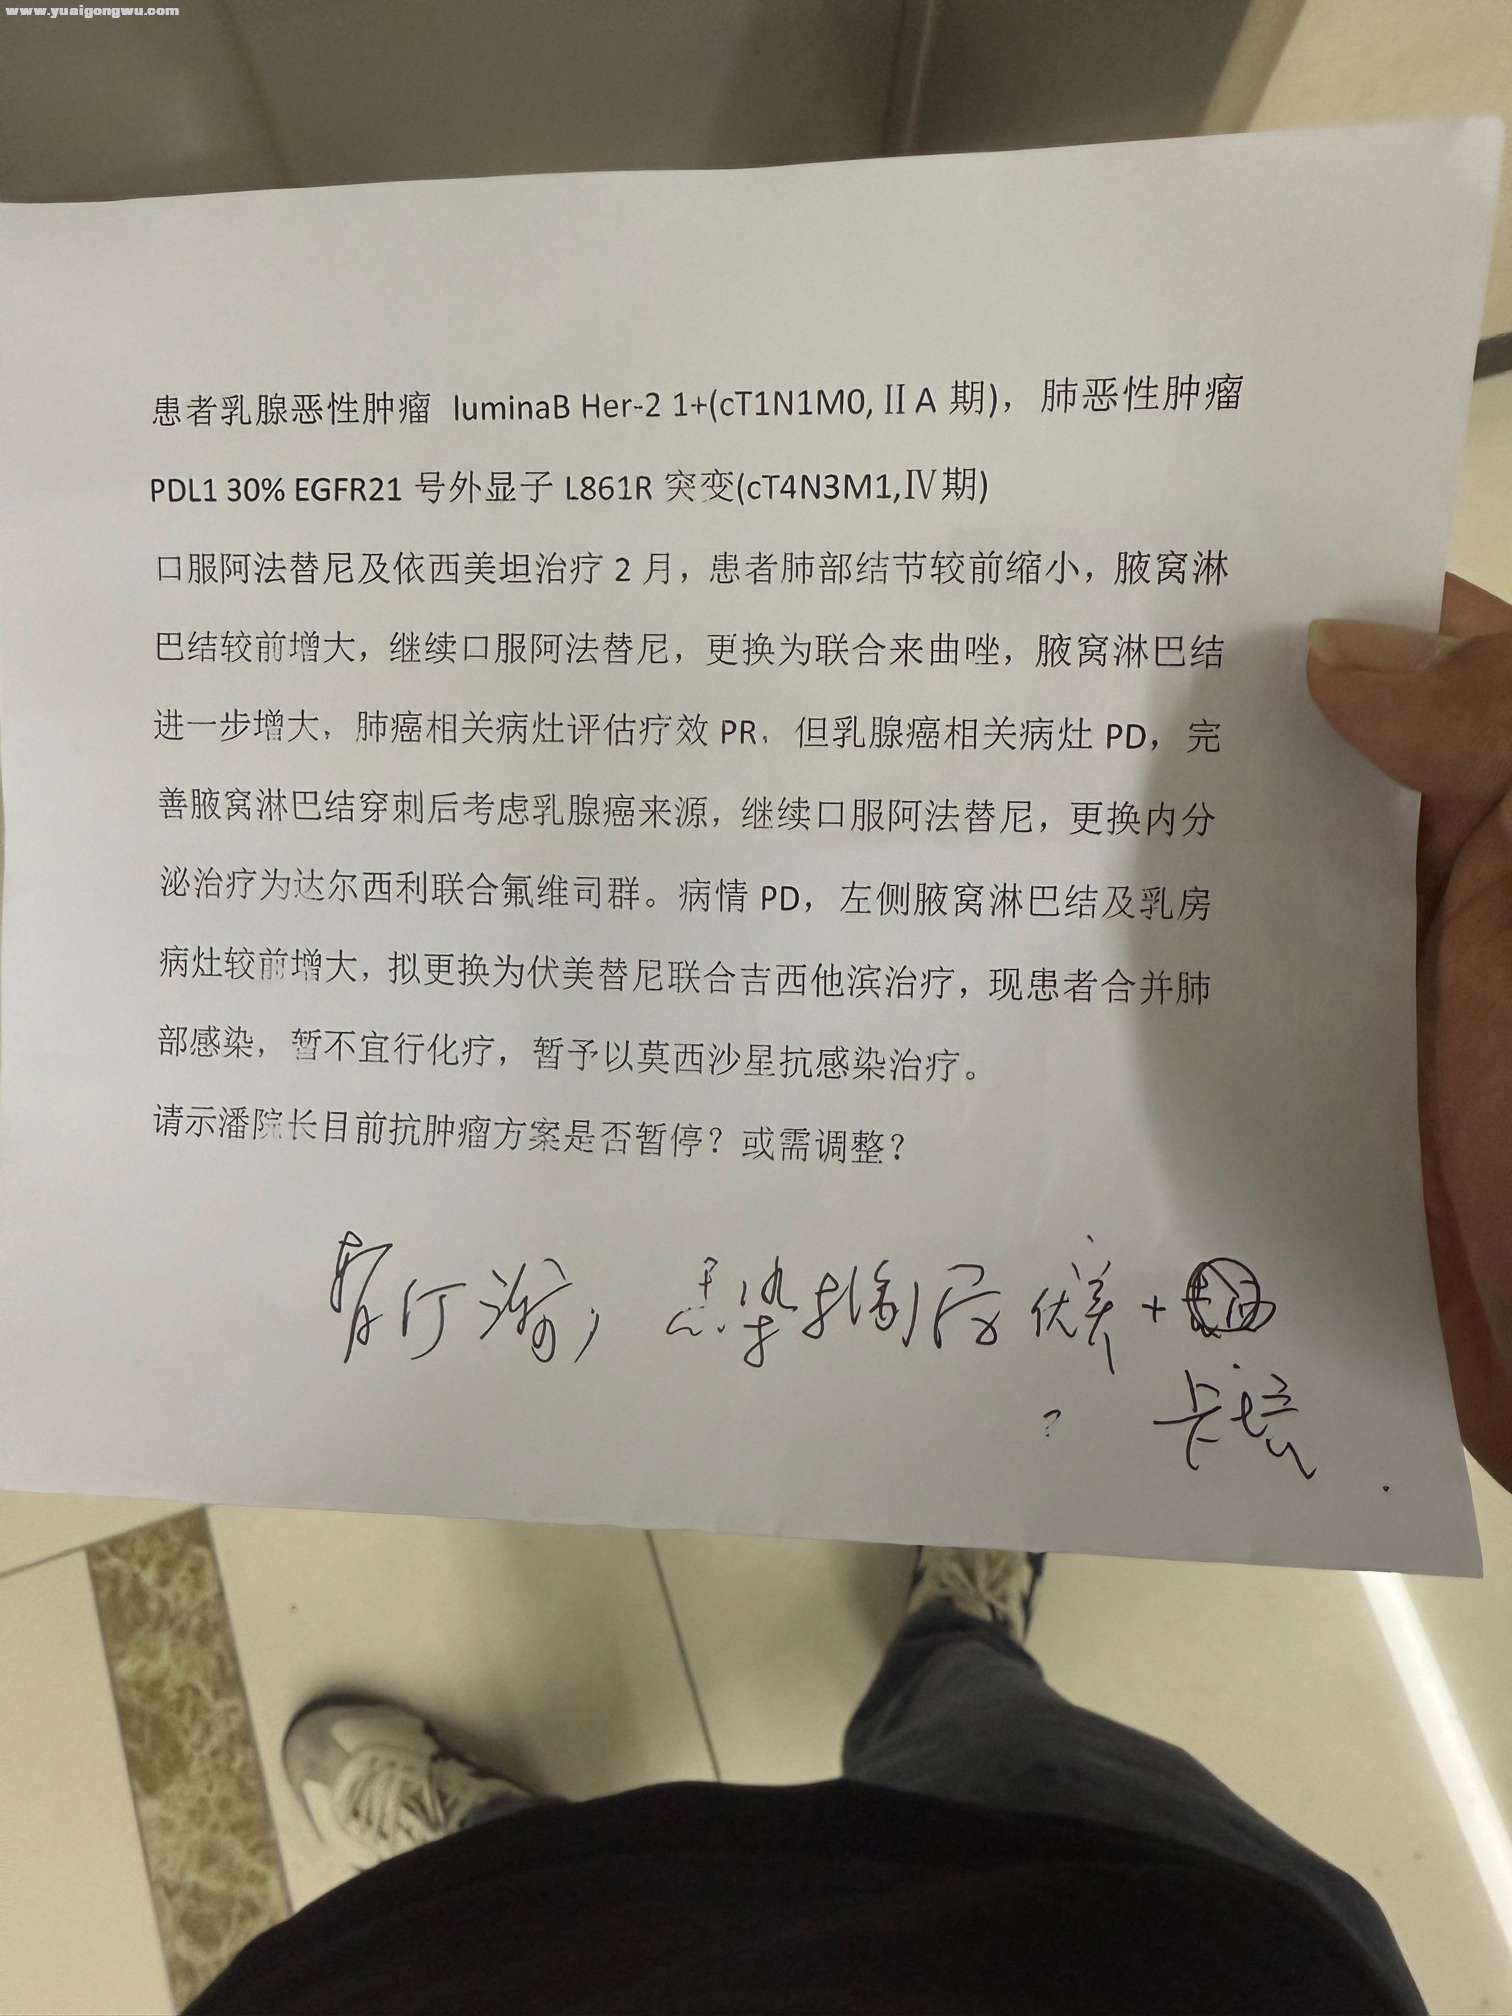 www.yuaigongwu.com
患者乳腺恶性肿瘤 luminaB Her-2 1+(cT1N1M0,ⅡA 期)，肺恶性肿瘤
PDL1 30% EGFR21 号外显子 L861R 突变(cT4N3M1,Ⅳ期)
口服阿法替尼及依西美坦治疗 2 月，患者肺部结节较前缩小，腋窝淋
巴结较前增大，继续口服阿法替尼，更换为联合来曲唑，腋窝淋巴结
进一步增大，肺癌相关病灶评估疗效 PR，但乳腺癌相关病灶 PD，完
善腋窝淋巴结穿刺后考虑乳腺癌来源，继续口服阿法替尼，更换内分
泌治疗为达尔西利联合氟维司群。病情 PD，左侧腋窝淋巴结及乳房
病灶较前增大，拟更换为伏美替尼联合吉西他滨治疗，现患者合并肺
部感染，暂不宜行化疗，暂予以莫西沙星抗感染治疗。
请示潘院长目前抗肿瘤方案是否暂停？或需调整？
暂停治疗，感染控制后 伏美+
? 卡培.